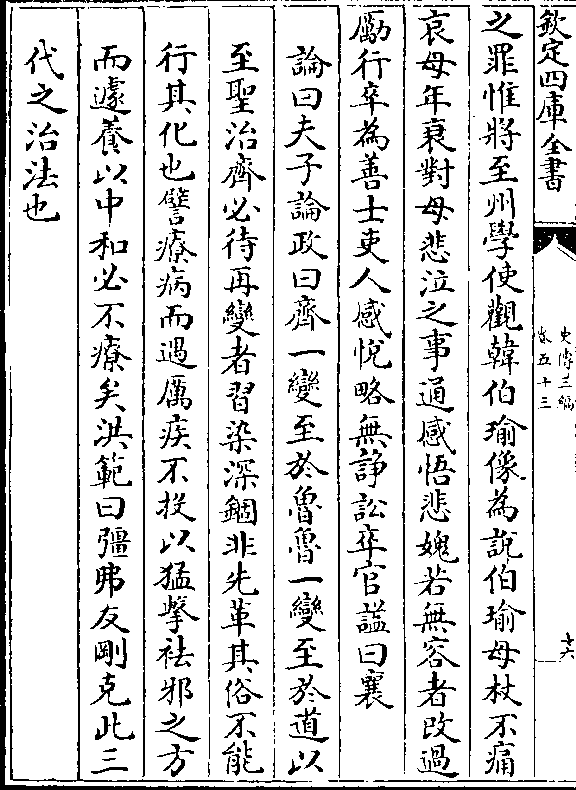 欽定四庫全書
史傳三編
卷五十三
十六
之罪惟將至州學使觀韓伯瑜像為説伯瑜母杖不痛
哀母年衰對母悲泣之事通感悟悲媿若無容者改過
勵行卒為善士吏人感悅略無諍訟卒官謚曰襄
論曰夫子論政曰齊一變至於魯魯一變至於道以
至聖治齊必待再變者習染深錮非先革其俗不能
行其化也譬療病而遇厲疾不投以猛擊祛邪之方
而遽養以中和必不療矣洪範曰彊弗友剛克此三
代之治法也